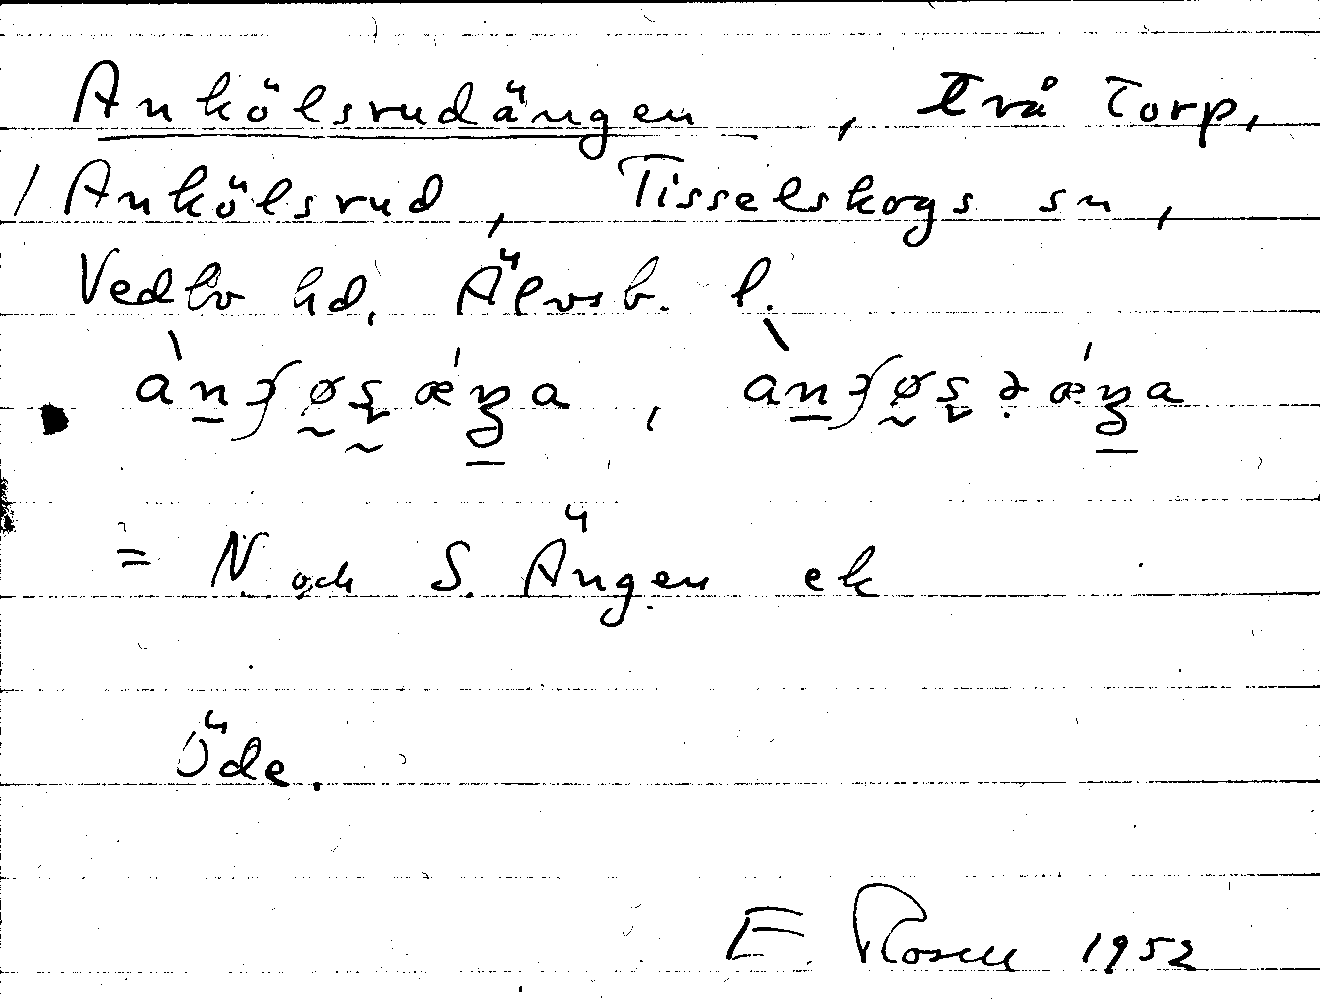 Ankölsrudängen, två Torp,
/ Ankölsrud, Tisselskogs sn,
Vedbo hd, Älvsb. l.
= N. och S. Ängen ek
Öde.
E. Rosell 1952